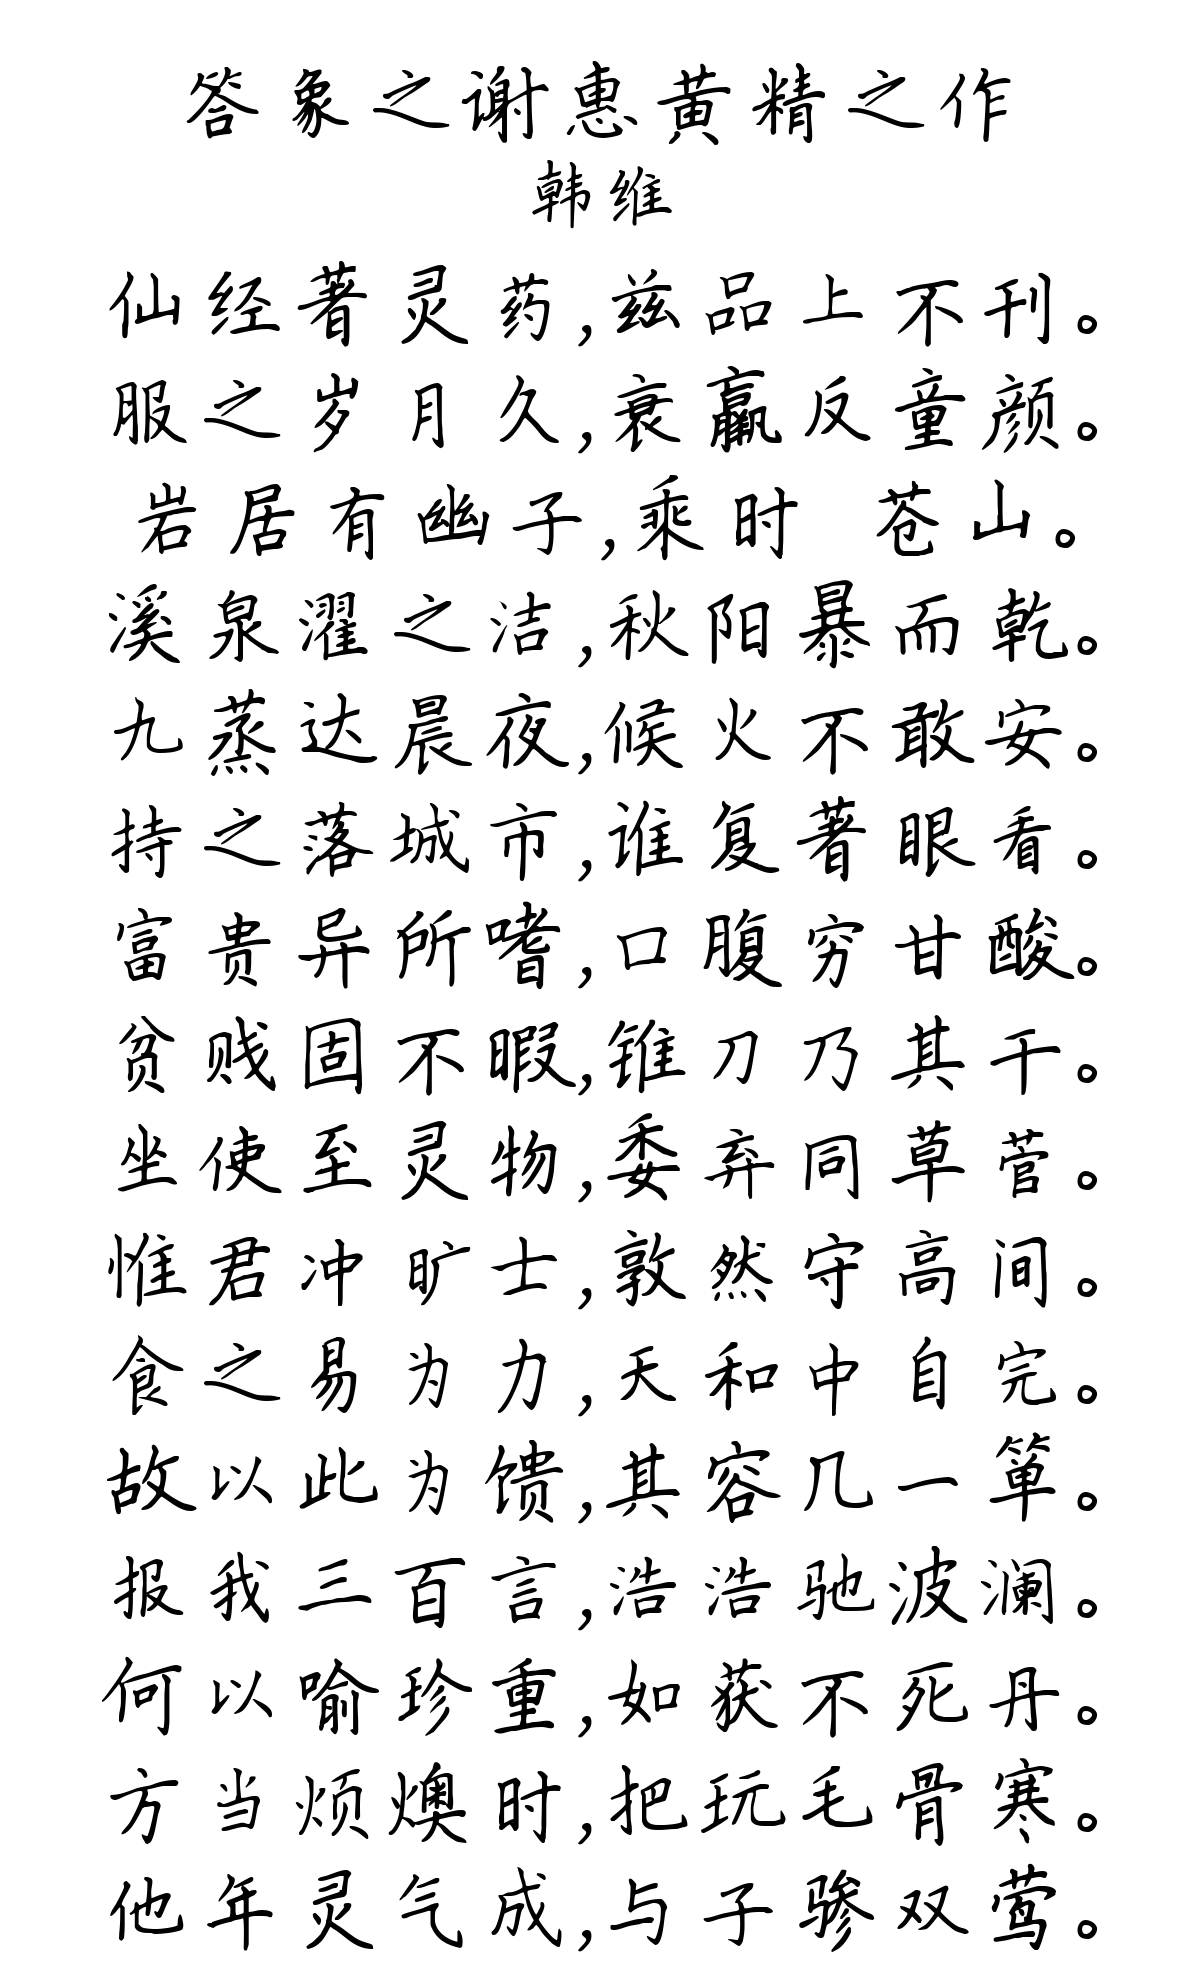 答象之谢惠黄精之作
韩维
仙经著灵药,兹品上不刊。
服之岁月久,衰羸反童颜。
岩居有幽子,乘时 苍山。
溪泉濯之洁,秋阳暴而乾。
九蒸达晨夜,候火不敢安。
持之落城市,谁复著眼看。
富贵异所嗜,口腹穷甘酸。
贫贱固不暇,锥刀乃其干。
坐使至灵物,委弃同草菅。
惟君冲旷士,敦然守高间。
食之易为力,天和中自完。
故以此为馈,其容几一箪。
报我三百言,浩浩驰波澜。
何以喻珍重,如获不死丹。
方当烦燠时,把玩毛骨寒。
他年灵气成,与子骖双莺。